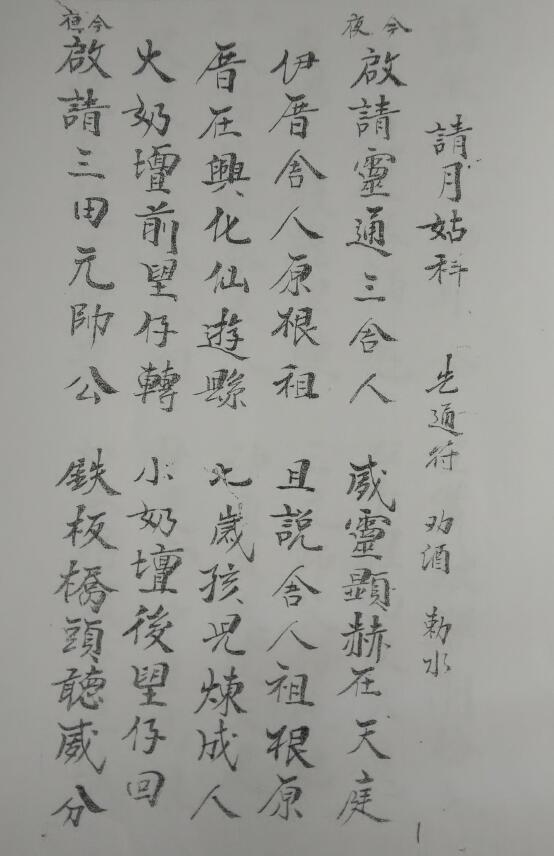 請月姑科 先通符 劝酒 勅水
今夜啟請靈通三舍人 威靈顯赫在天庭
伊厝舍人原根祖 且説舍人祖根原
厝在興化仙遊縣 七歲孩児煉成人
大奶壇前望仔轉 小奶壇後望仔回
今夜啟請三田元帥公 鉄板橋頭聽威分